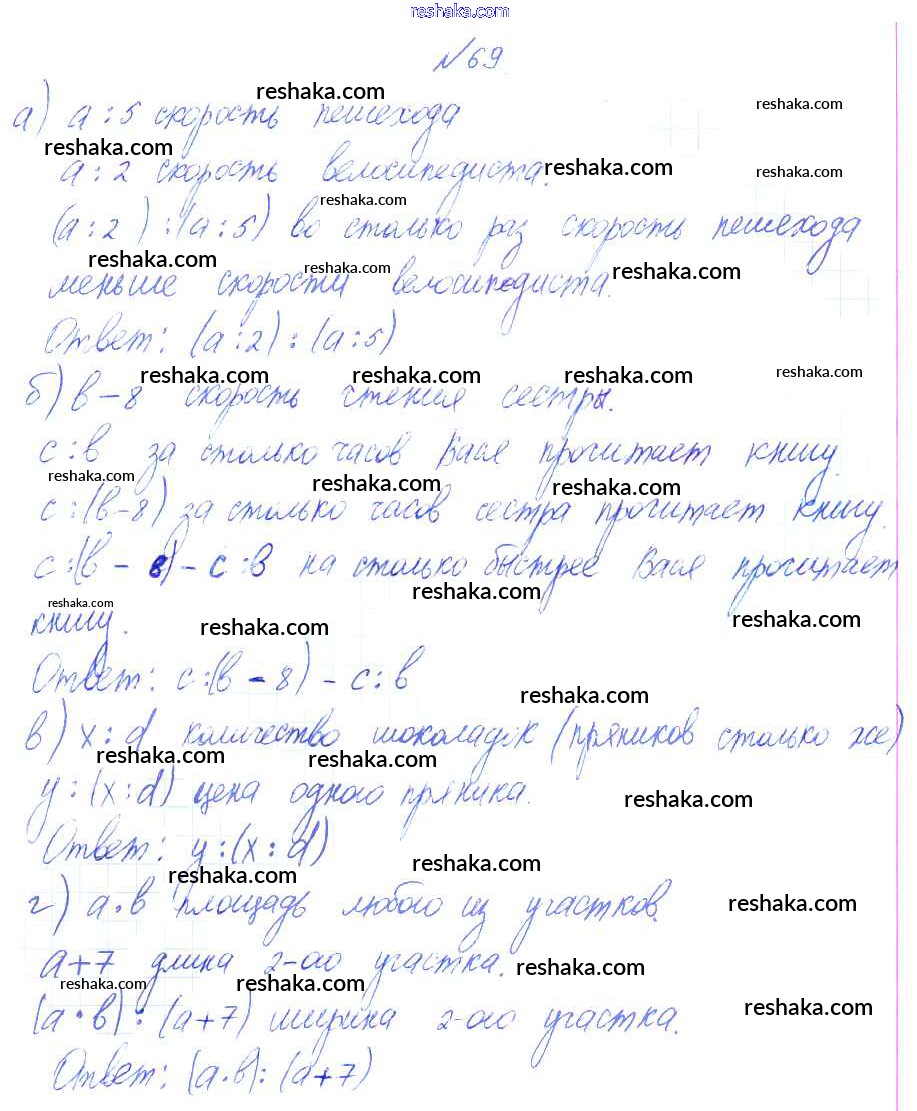 reshaka.com
№69
reshaka.com
reshaka.com
а) а : 5 скорость пешехода
reshaka.com
reshaka.com
а : 2 скорость велосипедиста.
reshaka.com
reshaka.com
(а : 2 ) : (а : 5) во столько раз скорость пешехода
reshaka.com
reshaka.com
reshaka.com
меньше скорости велосипедиста.
Ответ: (а : 2) : (а : 5)
reshaka.com
reshaka.com
reshaka.com
reshaka.com
б) в – 8 скорость чтения сестры.
с : в за столько часов Вася прочитает книгу
reshaka.com
reshaka.com
reshaka.com
с : (в – 8) за столько часов сестра прочитает книгу.
с : (в – 8) – с : в на столько быстрее Вася прочитает
reshaka.com
reshaka.com
reshaka.com
reshaka.com
книгу.
Ответ: с : (в – 8) – с : в
reshaka.com
в) х : d количество шоколадок (пряников столько же)
reshaka.com
reshaka.com
у : (х : d) цена одного пряника.
reshaka.com
Ответ: у : (х : d)
reshaka.com
reshaka.com
г) а · в площадь любого из участков.
reshaka.com
а + 7 длина 2-ого участка.
reshaka.com
reshaka.com
reshaka.com
(а · в) : (а + 7) ширина 2-ого участка.
reshaka.com
Ответ: (а · в) : (а + 7)